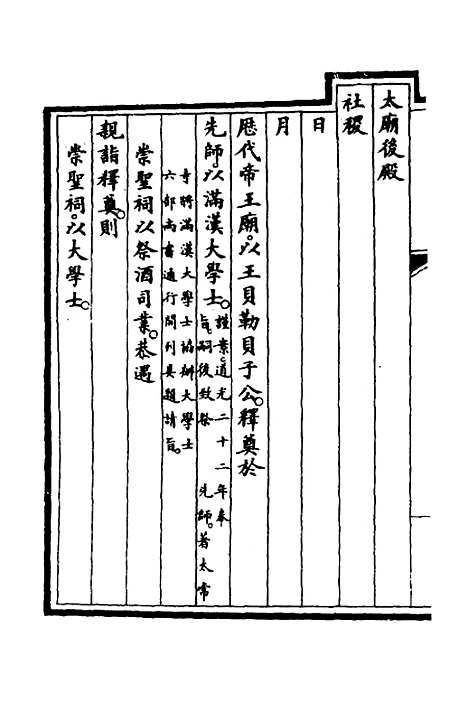 太廟後殿
社稷
日
月
歷代帝王廟。以王貝勒貝子公。釋奠於
先師。以滿漢大學士。謹案。道光二十二年奉
旨。嗣後致祭　先師。著太常
寺將滿漢大學士協辦大學士
六部尚書通行開列具題請旨。
崇聖祠以祭酒司業。恭遇
親詣釋奠。則
崇聖祠。以大學士。